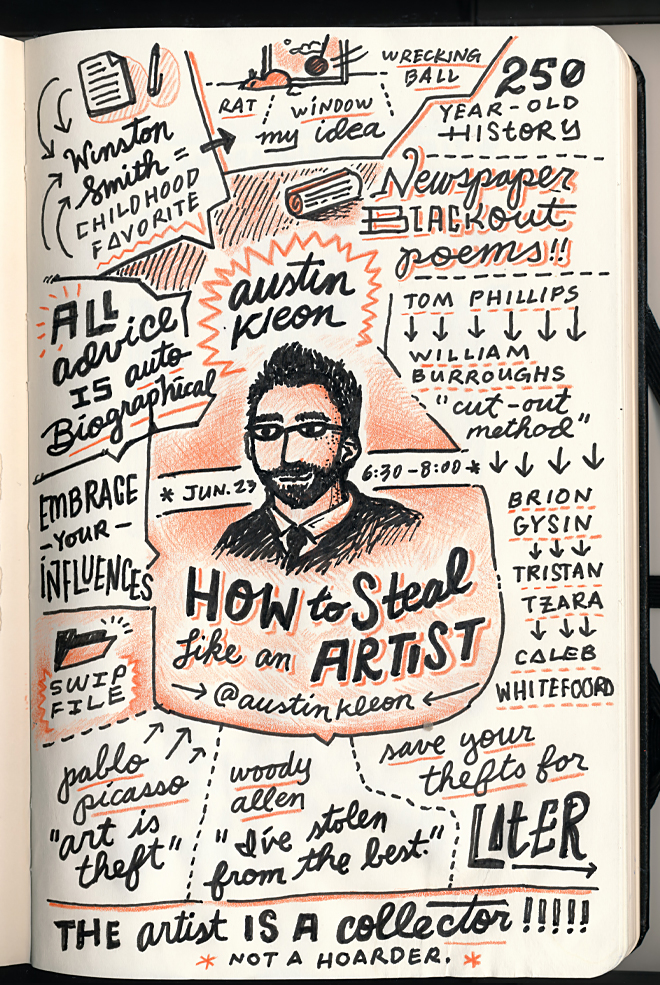 Winston
Smith =
CHILDHOOD
FAVORITE
RAT
WINDOW
WRECKING
BALL
my idea
250
YEAR-OLD
HISTORY
Newspaper
BLACKOUT
poems!!
austin
kleon
TOM PHILLIPS
WILLIAM
BURROUGHS
"cut-out
method"
BRION
GYSIN
TRISTAN
TZARA
CALEB
WHITEFOORD
ALL
advice
IS auto
Biographical
EMBRACE
-YOUR-
INFLUENCES
SWIP
FILE
* JUN. 23
6:30-8:00 *
HOW to Steal
like an ARTIST
@austinkleon
pablo
picasso
"art is
theft"
woody
allen
"I've stolen
from the best."
save your
thefts for
LATER
THE artist IS A collector !!!!!
* NOT A HOARDER. *